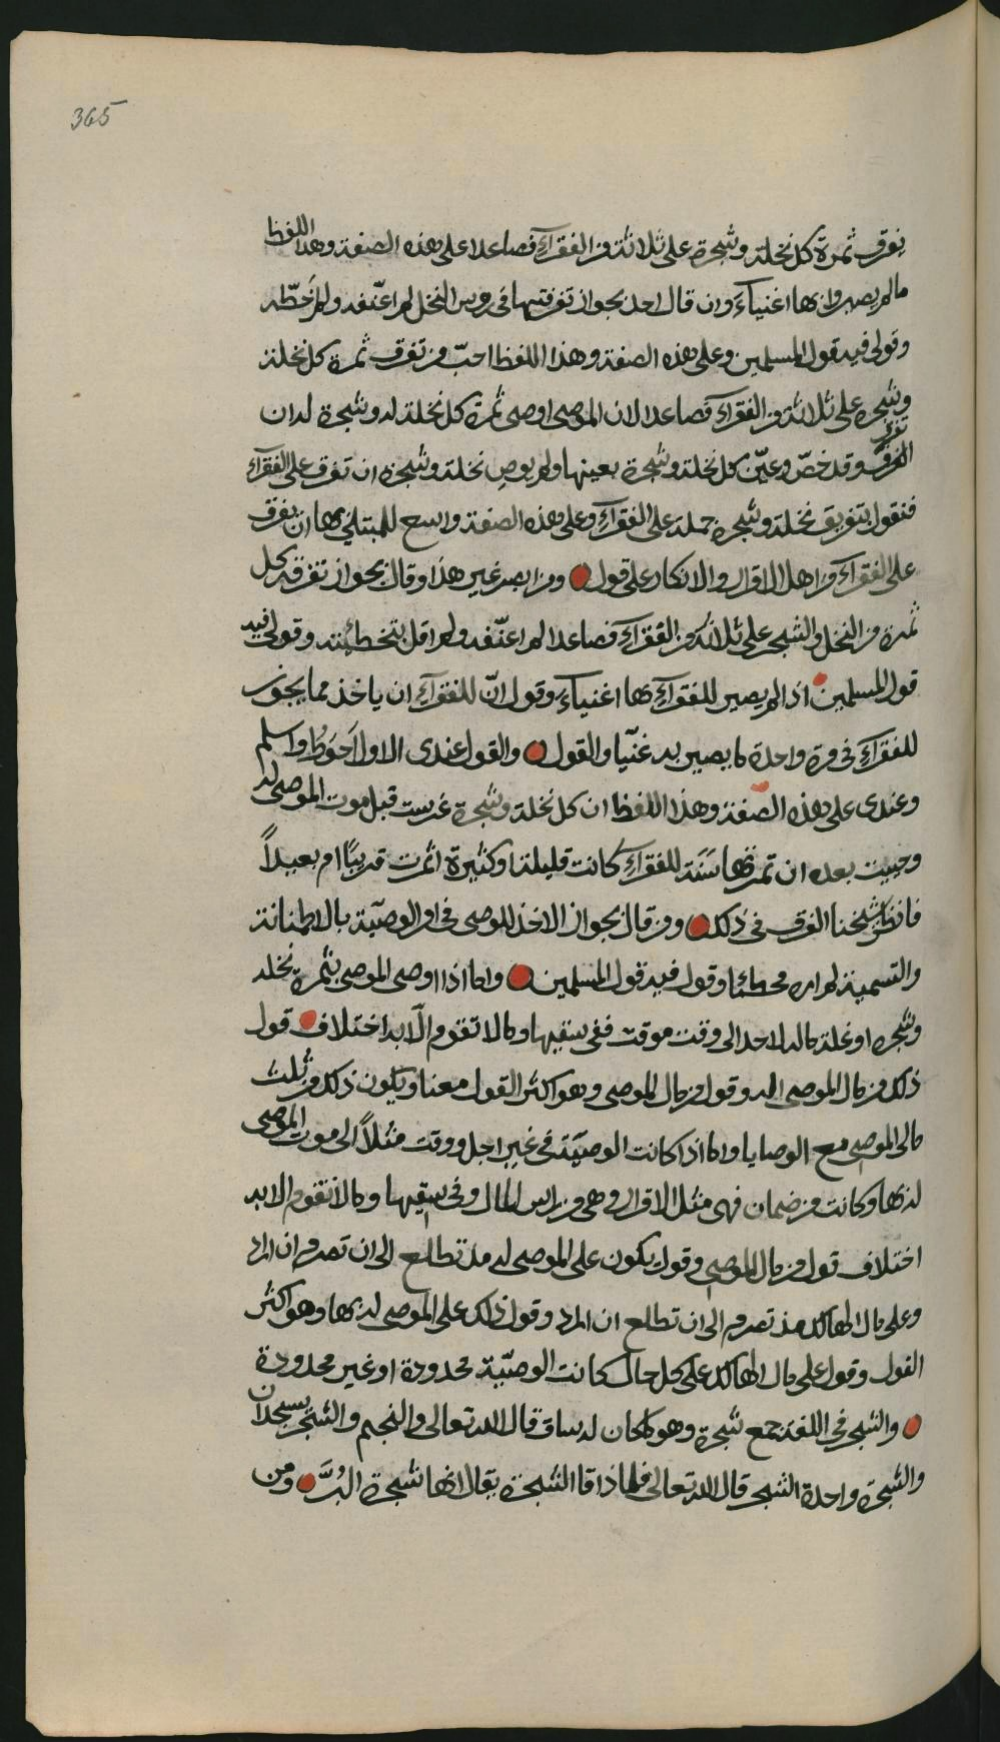 365
يفرق ثمرة كل نخلة وشجرة على ثلاثة من الفقراء فصاعدا على هذه الصفة وهذا اللفظ
ما لم يصيروا بها اغنياء وان قال احد بجواز تفرقتها في روس النخل لم اعنّفه ولم اخطّه
وقولي فيه قول المسلمين وعلى هذه الصفة وهذا اللفظ احبّ من تفرق ثمرة كل نخلة
وشجرة على ثلاثة من الفقراء فصاعدا لان الموصي اوصى ثمرة كل نخلة له وشجرة له ان
تفرق وقد خصّ وعيّن كل نخلة وشجرة بعينها ولم يوصِ نخلة وشجرة ان تفرق على الفقراء
فنقول بتفريق نخلة وشجرة جملة على الفقراء وعلى هذه الصفة واسع للمبتلي بها ان يفرق
على الفقراء من اهل الاقرار والانكار على قول ومن ابصر غير هذا وقال بجواز تفرقة كل
ثمرة من النخل والشجر على ثلاثة من الفقراء فصاعدا لم اعنّفه ولم اقل بتخطئته وقولي فيه
قول المسلمين اذا لم يصير للفقراء بها اغنياء وقول انّ للفقراء ان ياخذ مما يجوز
للفقراء في مرة واحدة ما يصير به غنيّا والقول والقول عندي الاول احوَطُ واسلم
وعندي على هذه الصفة وهذا اللفظ ان كل نخلة وشجرة غرست قبل موت الموصى له
وحييت بعده ان ثمرتها سَنَة للفقراء كانت قليلة او كثيرة اثمرت قريبًا ام بعيداً
فانظر شيخنا الفرق في ذلك ومن قال بجواز الاخذ للوصي في او الوصيّة بالاطمنانة
والتسمية لم اره مخطئا وقول فيه قول المسلمين واما اذا اوصى الموصي بثمرة نخله
وشجره او غلة ماله لاحد الى وقت موقت ففي سقيها وما لا تقوم الّا به اختلاف قول
ذلك من مال الموصى اله وقول من مال الموصي وهو اكثر القول معنا ويكون ذلك من ثلث
مالي الموصي مع الوصايا واما اذا كانت الوصيّة في غير اجل ووقت مثلاً الى موت الموصى
له بها وكانت من ضمان فهي مثل الاقرار وهي من راس المال وفي سقيها وما لا تقوم الا به
اختلاف قول من مال الموصي وقول يكون على الموصى له مذ تطالع الى ان تصرم ان اراد
وعلى مال الهالك مذ تصرم الى ان تطلع ان اراد وقول ذلك على الموصى له بها وهو اكثر
القول وقول على مال الهالك على كل حال كانت الوصيّة محدودة او غير محدودة
والشجر في اللغة جمع شجرة وهو كلما كان له ساق قال الله تعالى والنجم والشجر يسجدان
والشجرة واحدة الشجر قال الله تعالى فلما ذاقا الشجرة يقال انها شجرة البُرّ ومن